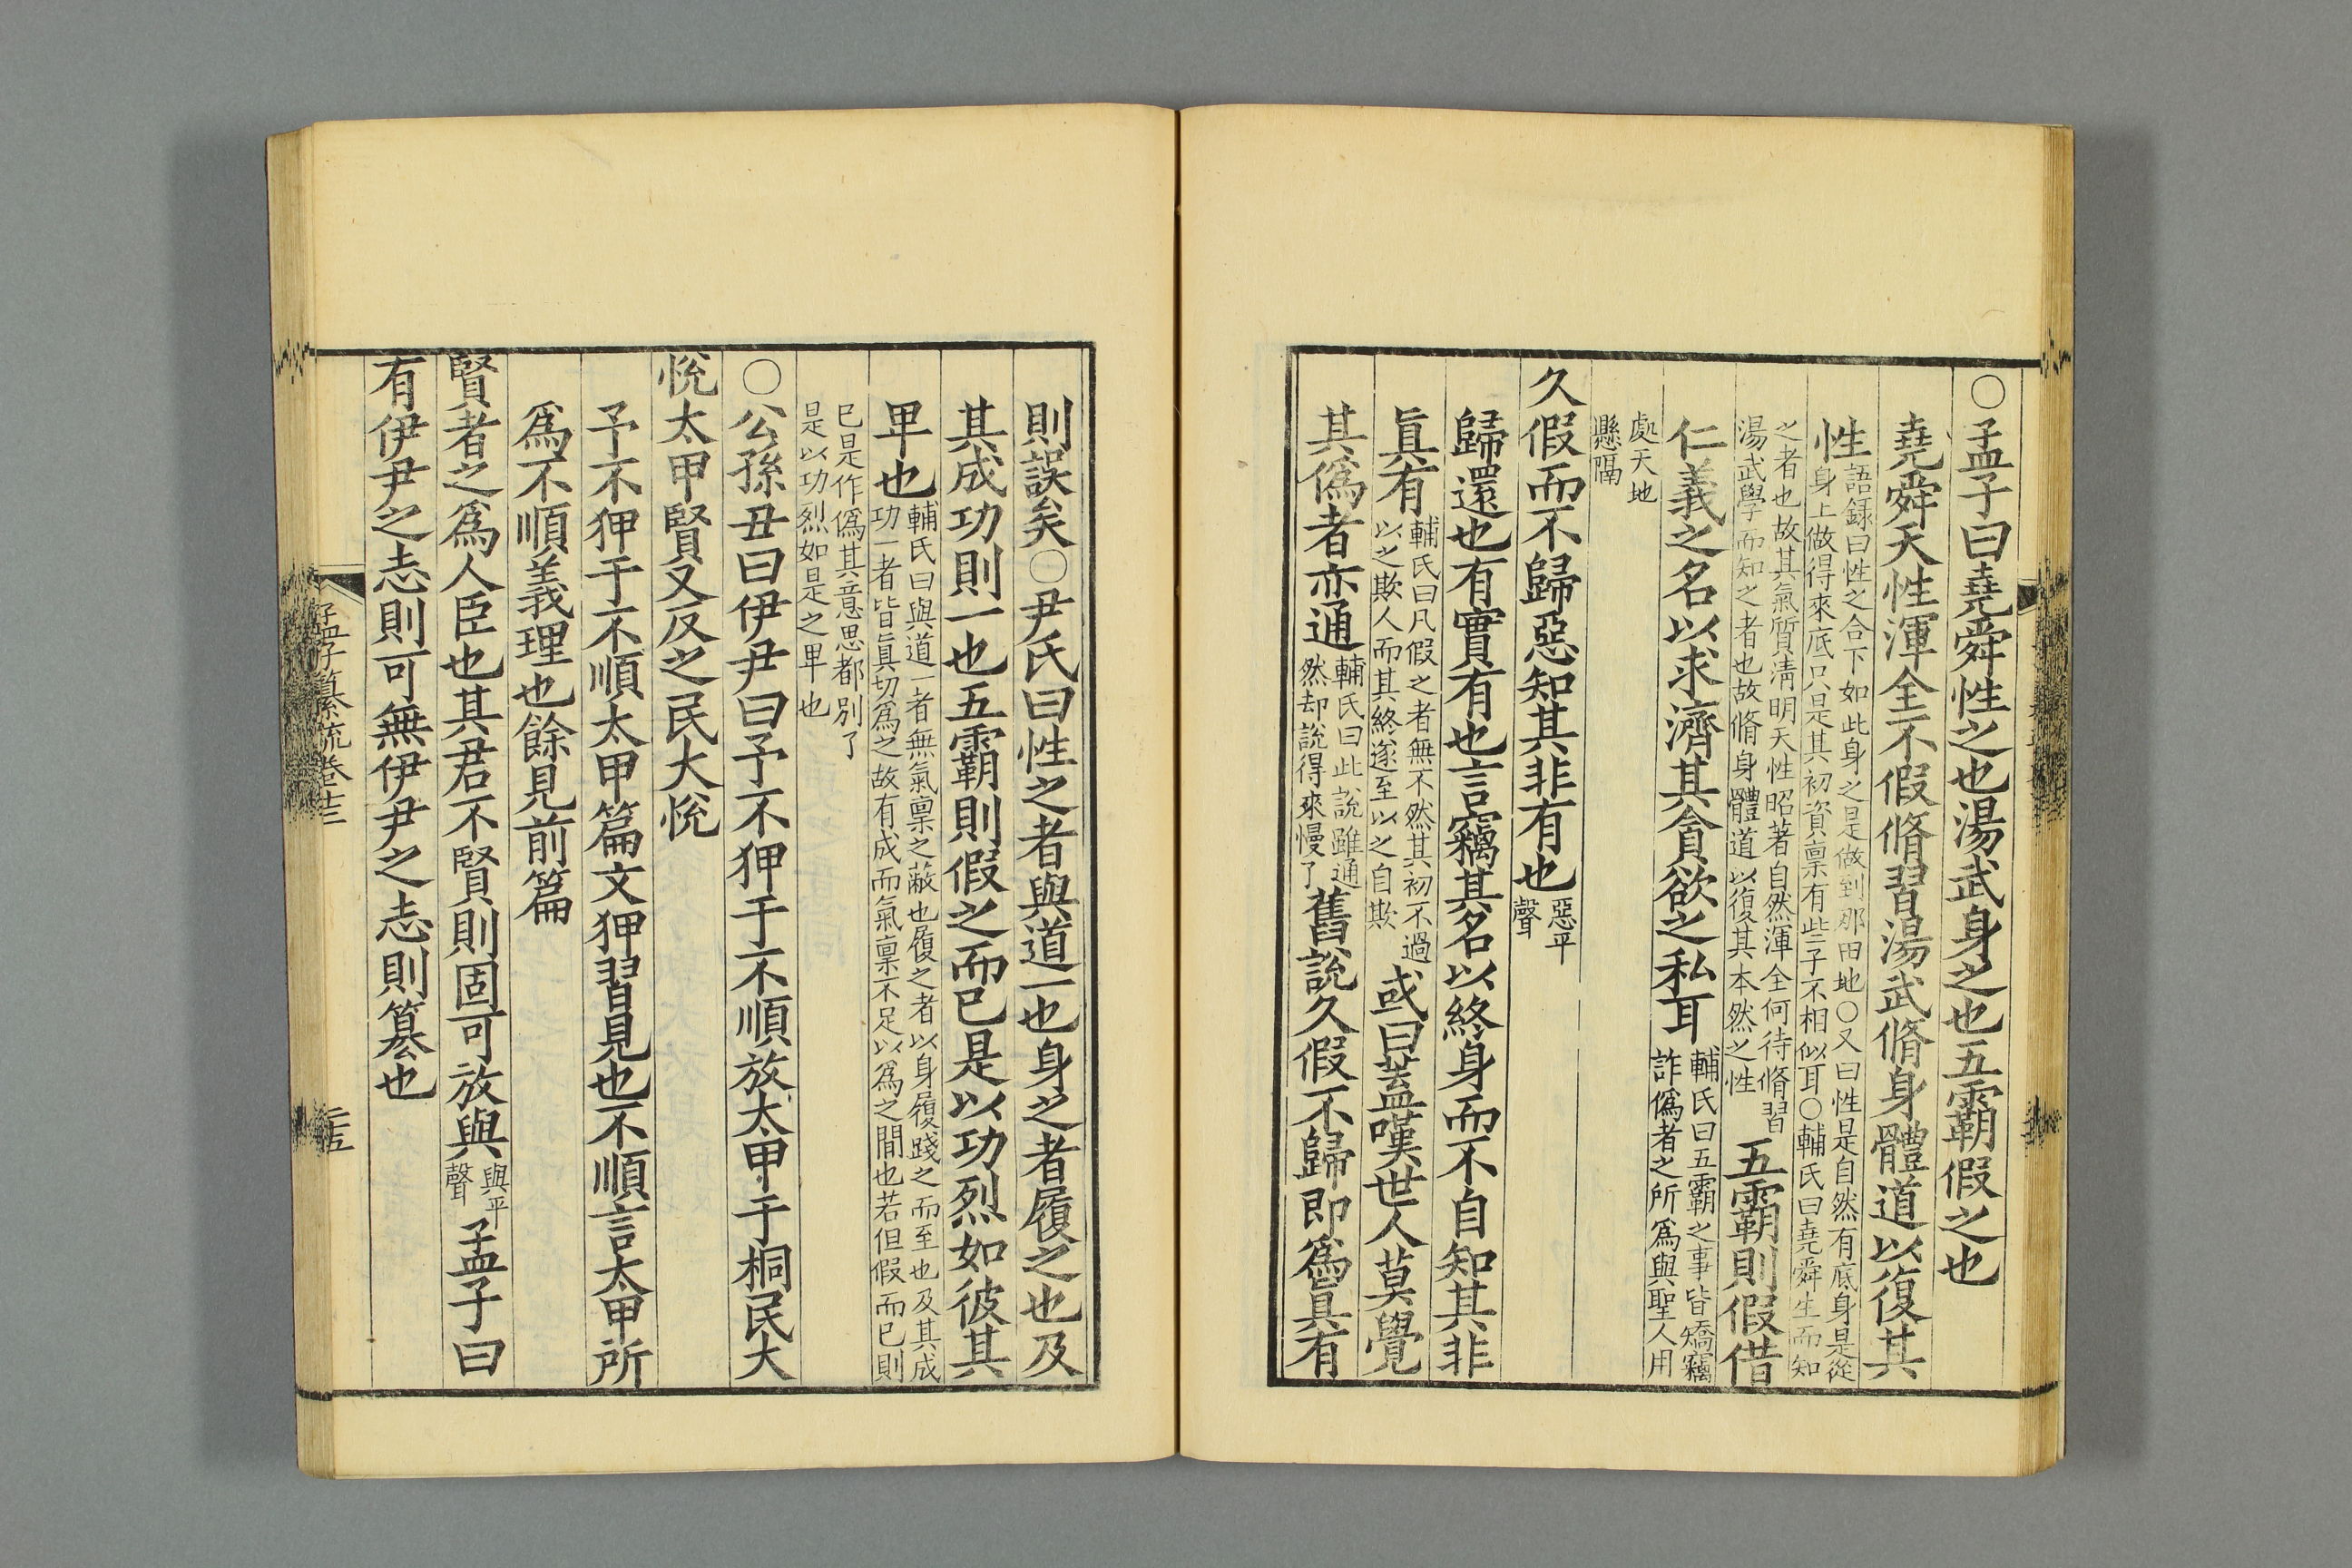 ○孟子曰堯舜性之也湯武身之也五霸假之也
堯舜天性渾全不假脩習湯武脩身體道以復其
性
語錄曰性之合下如此身之是做到那田地○又曰性是自然有底身是從
身上做得來底只是其初資稟有些子不相似耳○輔氏曰堯舜生而知
之者也故其氣質淸明天性昭著自然渾全何待脩習
湯武學而知之者也故脩身體道以復其本然之性
五霸則假借
仁義之名以求濟其貪欲之私耳
輔氏曰五霸之事皆矯竊
詐僞者之所爲與聖人用
處天地
懸隔
久假而不歸惡知其非有也
惡平
聲
歸還也有實有也言竊其名以終身而不自知其非
眞有
輔氏曰凡假之者無不然其初不過
以之欺人而其終遂至以之自欺
或曰蓋嘆世人莫覺
其僞者亦通
輔氏曰此說雖通
然却說得來慢了
舊說久假不歸即爲眞有
則誤矣○尹氏曰性之者與道一也身之者履之也及
其成功則一也五霸則假之而已是以功烈如彼其
卑也
輔氏曰與道一者無氣稟之蔽也履之者以身履踐之而至也及其成
功一者皆眞切爲之故有成而氣稟不足以爲之間也若但假而已則
已是作僞其意思都別了
是以功烈如是之卑也
○公孫丑曰伊尹曰予不狎于不順放太甲于桐民大
悅太甲賢又反之民大悅
予不狎于不順太甲篇文狎習見也不順言太甲所
爲不順義理也餘見前篇
賢者之爲人臣也其君不賢則固可放與
與平
聲
孟子曰
有伊尹之志則可無伊尹之志則篡也
孟子纂疏卷十三
二十五